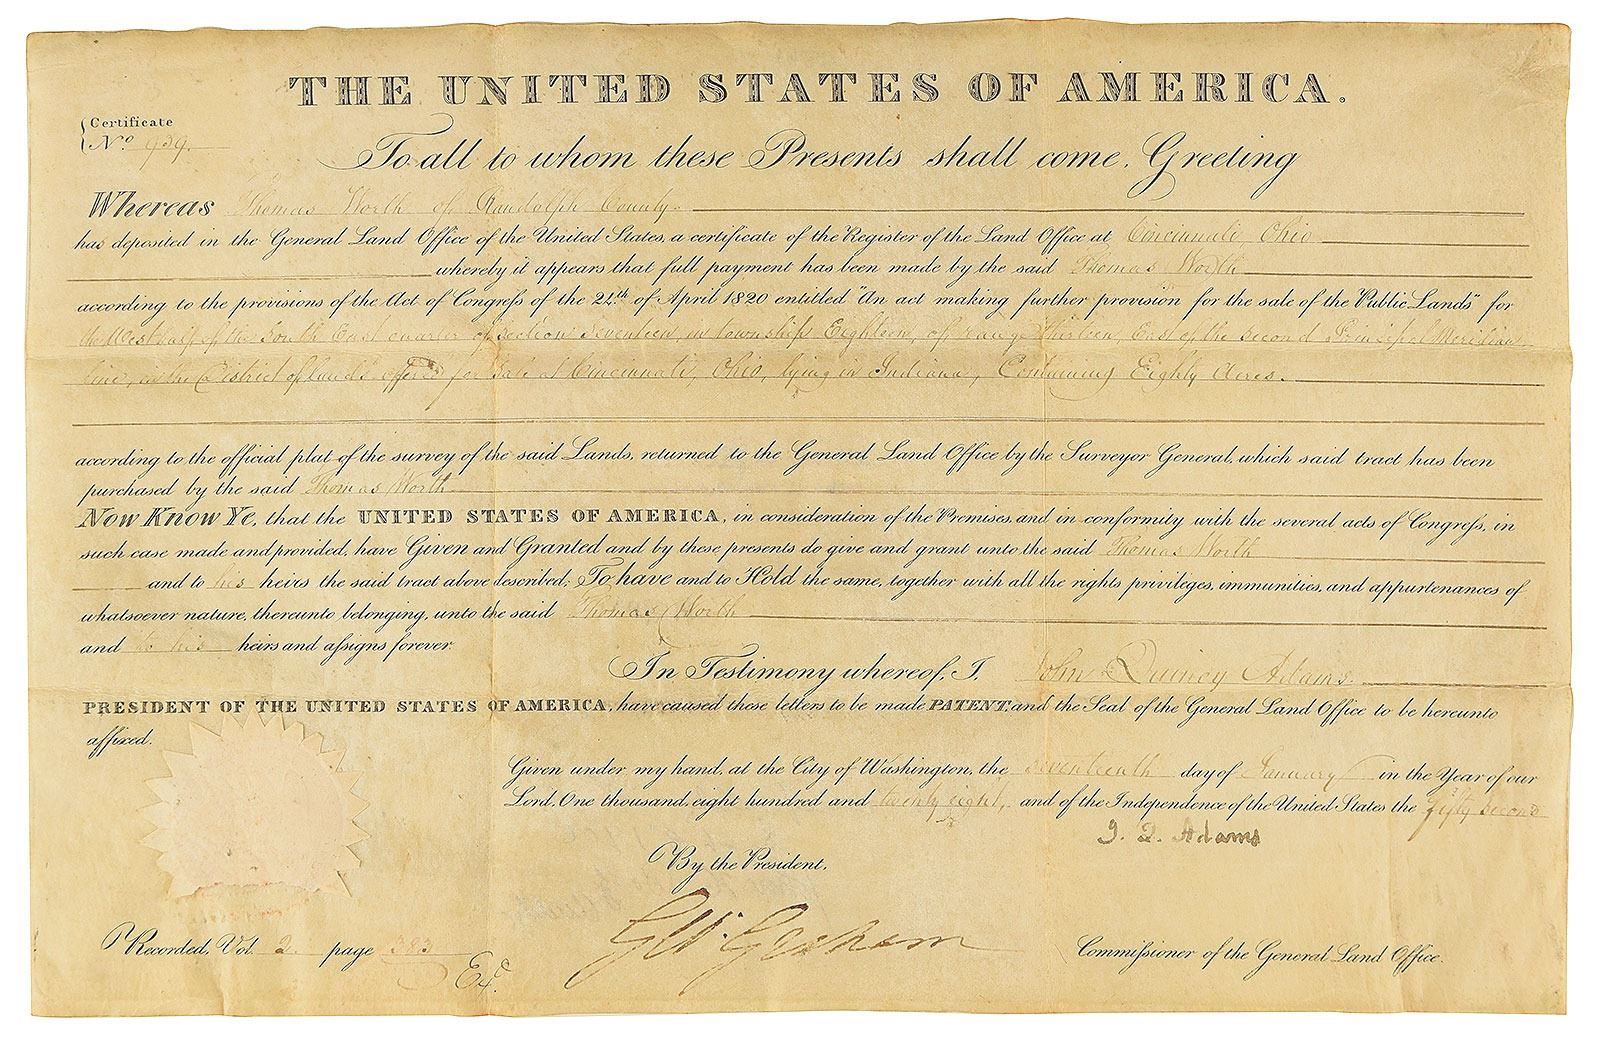 THE UNITED STATES OF AMERICA.
Certificate
No. 939.
To all to whom these Presents shall come, Greeting
Whereas Thomas Worth of Randolph County.
has deposited in the General Land Office of the United States, a certificate of the Register of the Land Office at Cincinnati, Ohio
whereby it appears that full payment has been made by the said Thomas Worth
according to the provisions of the Act of Congress of the 24th of April 1820 entitled "An act making further provision for the sale of the Public Lands" for
the West half of the South East quarter of section seventeen, in township Eighteen, of range thirteen, East of the second Principal Meridian
line, in the District of lands offered for Sale at Cincinnati, Ohio, lying in Indiana, Containing Eighty Acres.
according to the official plat of the survey of the said Lands, returned to the General Land Office by the Surveyor General, which said tract has been
purchased by the said Thomas Worth
Now Know Ye, that the UNITED STATES OF AMERICA, in consideration of the Premises, and in conformity with the several acts of Congress, in
such case made and provided, have Given and Granted and by these presents do give and grant unto the said Thomas Worth
and to his heirs the said tract above described; To have and to Hold the same, together with all the rights privileges, immunities, and appurtenances of
whatsoever nature, thereunto belonging, unto the said Thomas Worth
and to his heirs and assigns forever.
In Testimony whereof, I, John Quincy Adams.
PRESIDENT OF THE UNITED STATES OF AMERICA, have caused these letters to be made PATENT, and the Seal of the General Land Office to be hereunto
affixed.
Given under my hand, at the City of Washington, the seventeenth day of January in the Year of our
Lord, One thousand, eight hundred and twenty eight, and of the Independence of the United States the fifty second
J. Q. Adams
By the President,
Geo: Graham
Commissioner of the General Land Office.
Recorded, Vol. 2. page 383
Exd.